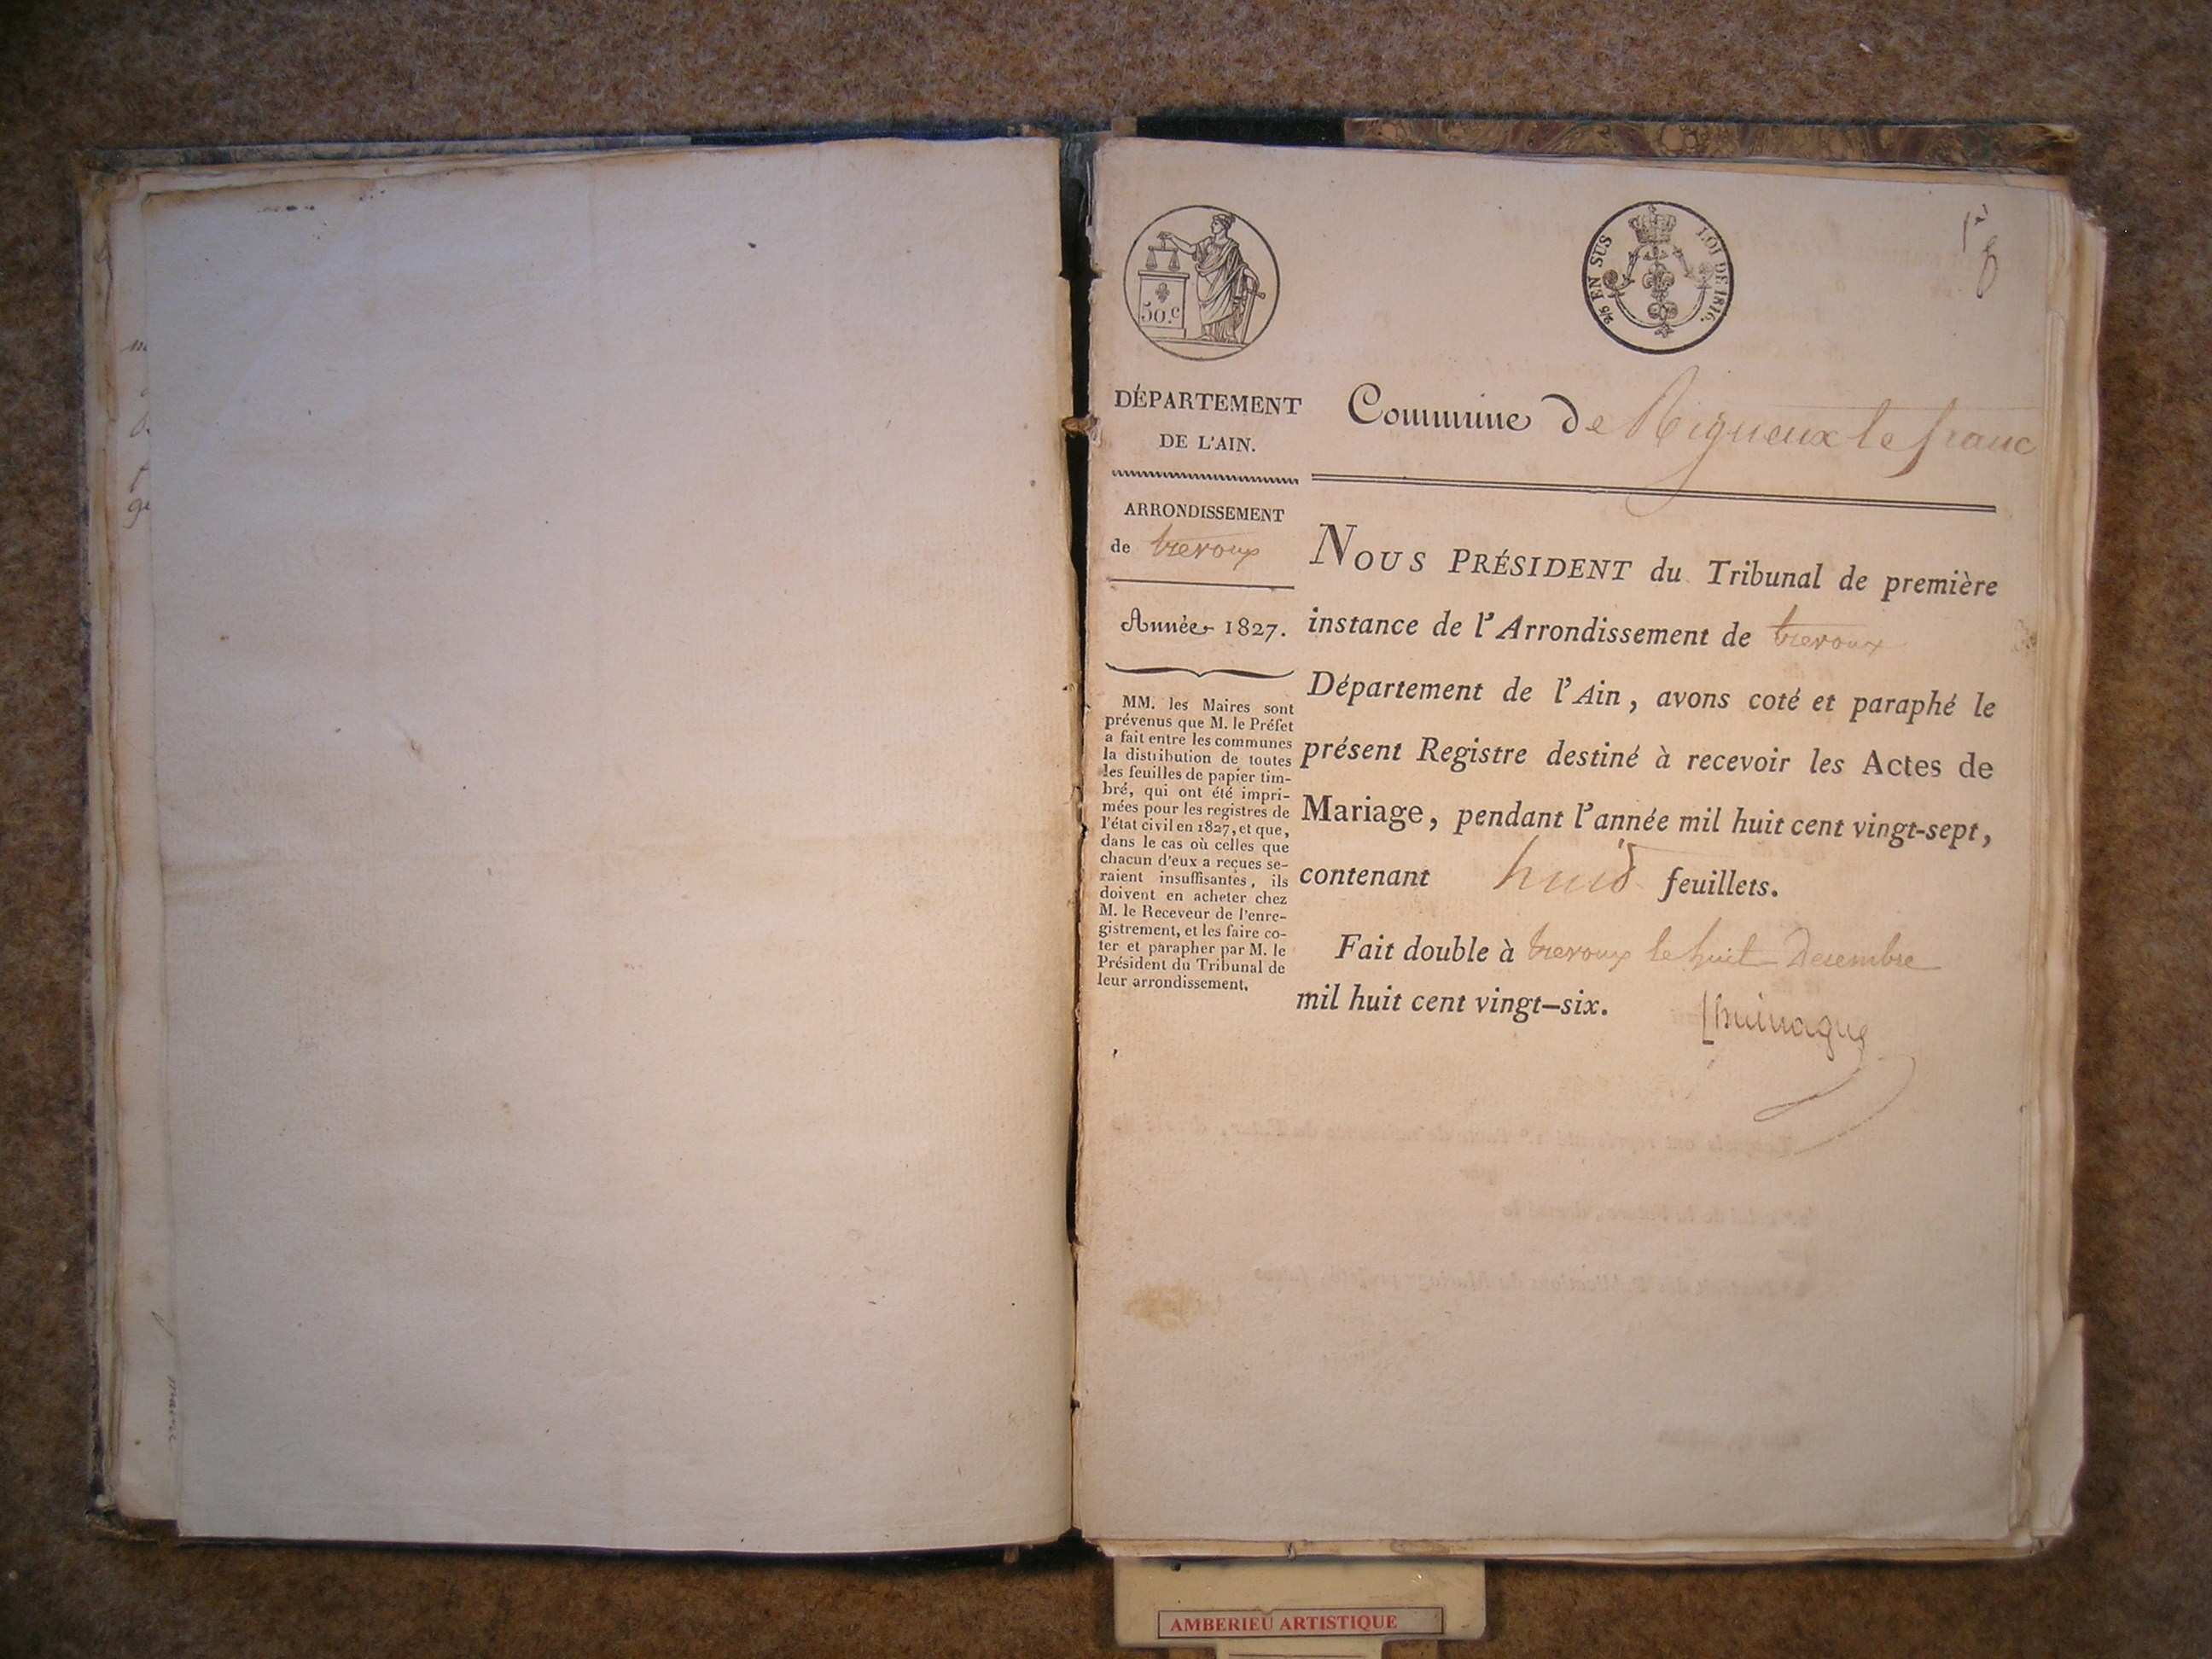 50.c
25 EN SUS LOI DE 1816.
DÉPARTEMENT
DE L'AIN.
Commune de Rigneux le franc
ARRONDISSEMENT
de trevoux
Année 1827.
MM. les Maires sont
prévenus que M. le Préfet
a fait entre les communes
la distribution de toutes
les feuilles de papier tim-
bré, qui ont été impri-
mées pour les registres de
l'état civil en 1827, et que,
dans le cas où celles que
chacun d'eux a reçues se-
raient insuffisantes, ils
doivent en acheter chez
M. le Receveur de l'enre-
gistrement, et les faire co-
ter et parapher par M. le
Président du Tribunal de
leur arrondissement.
NOUS PRÉSIDENT du Tribunal de première
instance de l'Arrondissement de trevoux
Département de l'Ain, avons coté et paraphé le
présent Registre destiné à recevoir les Actes de
Mariage, pendant l'année mil huit cent vingt-sept,
contenant huit feuillets.
Fait double à trevoux le huit Decembre
mil huit cent vingt-six.
AMBERIEU ARTISTIQUE